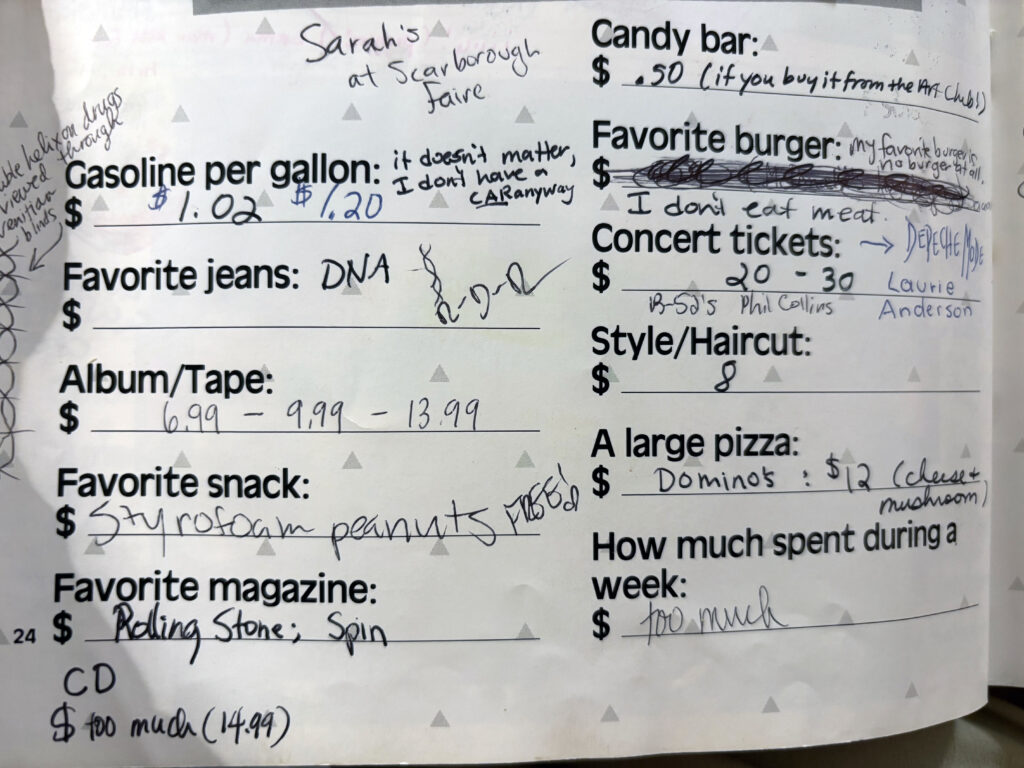 Sarah's
at Scarborough
Faire
double helix on drugs
viewed through
venitian
blinds
Gasoline per gallon: it doesn't matter,
I don't have a
CAR anyway
$ $1.02 $1.20
Favorite jeans: DNA
$
Album/Tape:
$ 6.99 - 9.99 - 13.99
Favorite snack:
$ Styrofoam peanuts FREE!
Favorite magazine:
24 $ Rolling Stone; Spin
CD
$ too much (14.99)
Candy bar:
$ .50 (if you buy it from the Art Club!)
Favorite burger: my favorite burger is
no burger at all.
$
I don't eat meat.
Concert tickets: → DEPECHE MODE
$ 20 - 30 Laurie
B-52's Phil Collins Anderson
Style/Haircut:
$ 8
A large pizza:
$ Domino's : $12 (cheese +
mushroom)
How much spent during a
week:
$ too much